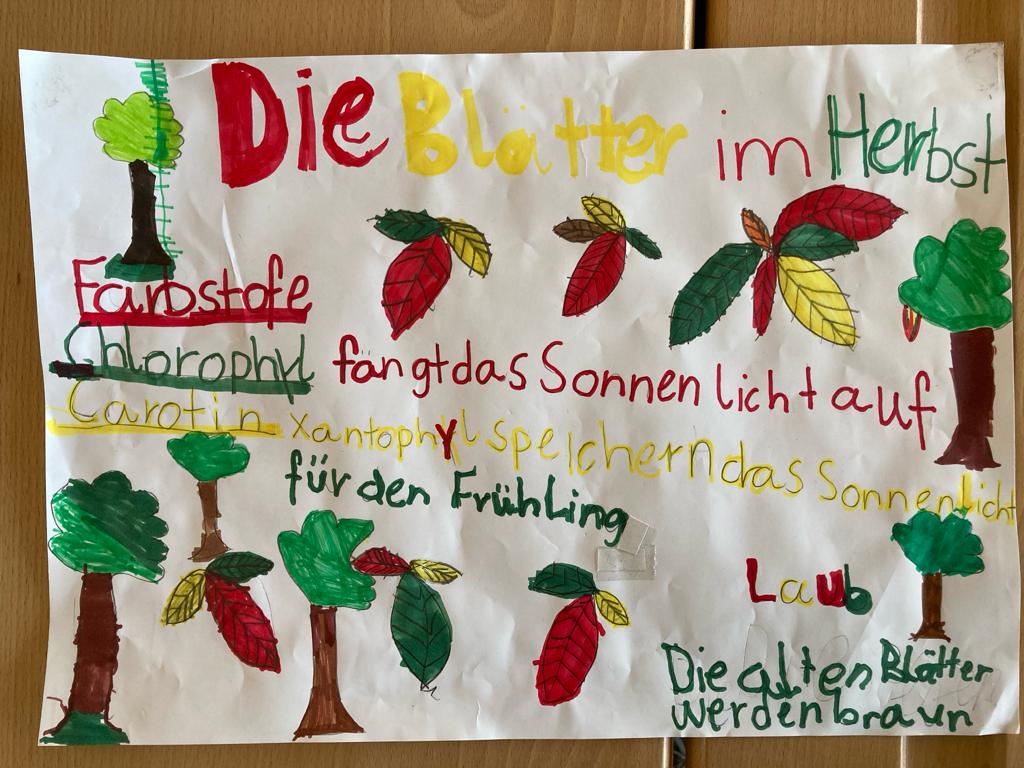 Die Blätter im Herbst
Farbstofe
Chlorophyl fängt das Sonnenlicht auf
Carotin xantophyl speichern das Sonnenlicht
für den Frühling
Laub
Die alten Blätter
werden braun